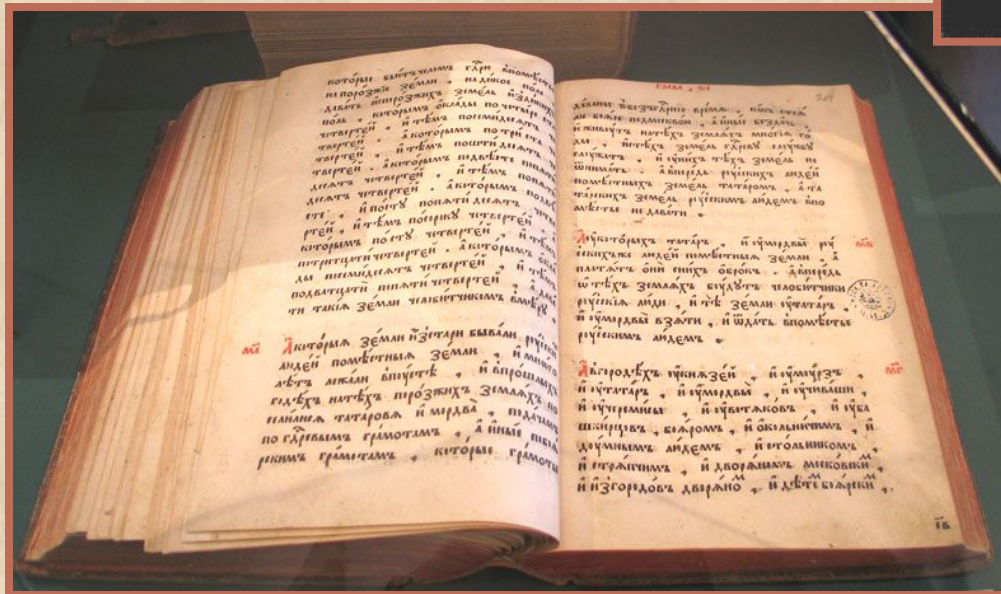 кото́рые бьютъ челомъ гдрю впомѣстье
напоро́зжїе земли , надикое поле
давать испорозжихъ земель издикихъ
поль , которымъ оклады почетыре ста
четвертей , итѣмъ посемидесятъ че
твертей , акоторымъ потри ста че
твертей , итѣмъ пошти десятъ че
твертей . акоторымъ подвѣсте попяти
десятъ четвертей , итѣмъ попяти
десятъ четвертей . акоторымъ подвѣ
сте , ипосту попяти десятъ четве
ртей , итѣмъ посороку четвертей
которымъ посту четвертей , итѣмъ
потритцати четвертей . акоторымъ окла
ды посемидесятъ четвертей , итѣмъ
подватцати ипяти четвертей , адава
ти такїя земли челобитчикомъ вмѣру .
ма Акоторыя земли изстари бывали рꙋскихъ
людей помѣстныя земли , имногїя
лѣтъ лежали впꙋстѣ , ивпрошлыхъ
годѣхъ натѣхъ порозжихъ земляхъ по
селилися татаровя имордва , подачамъ
погдревымъ грамотамъ , аиные побоя
рскимъ грамотамъ , которые грамоты
глава , ѕі
даваны вбезгдрное время , какъ стоя
ли бояре подмосквою , аиные бездачъ
иживꙋтъ натѣхъ земляхъ многїя го
ды , истѣхъ земель гдревꙋ слꙋжбꙋ
слꙋжатъ , иꙋнихъ тѣхъ земель не
ѿнимать . авпередь рꙋсскихъ людей
помѣстныхъ земель татаромъ , ата
тарскихъ земель рꙋсскимъ людемъ впо
мѣстье недавати .
Аꙋкоторыхъ татаръ , иꙋмордвы рꙋ мв
сскихъже людей помѣстныя земли , а
платятъ они снихъ оброкъ . авпередь
ѡтѣхъ земляхъ бꙋдꙋтъ челобитчики
рꙋсскїя люди , итѣ земли ꙋтатаръ ,
иꙋмордвы взяти , иѿдать впомѣстье
рꙋсскимъ людемъ .
Авгородѣхъ ꙋкнязей иꙋмꙋрзъ , мг
иꙋтатаръ , иꙋмордвы , иꙋчюваши ,
иꙋчеремисы , иꙋвотяковъ , иꙋба
шкирцовъ , бояромъ , иокольничимъ , и
дꙋмнымъ людемъ , истольникомъ ,
истряпчимъ , идворяномъ московски
иизгородовъ дворяно , идѣте боярски ,